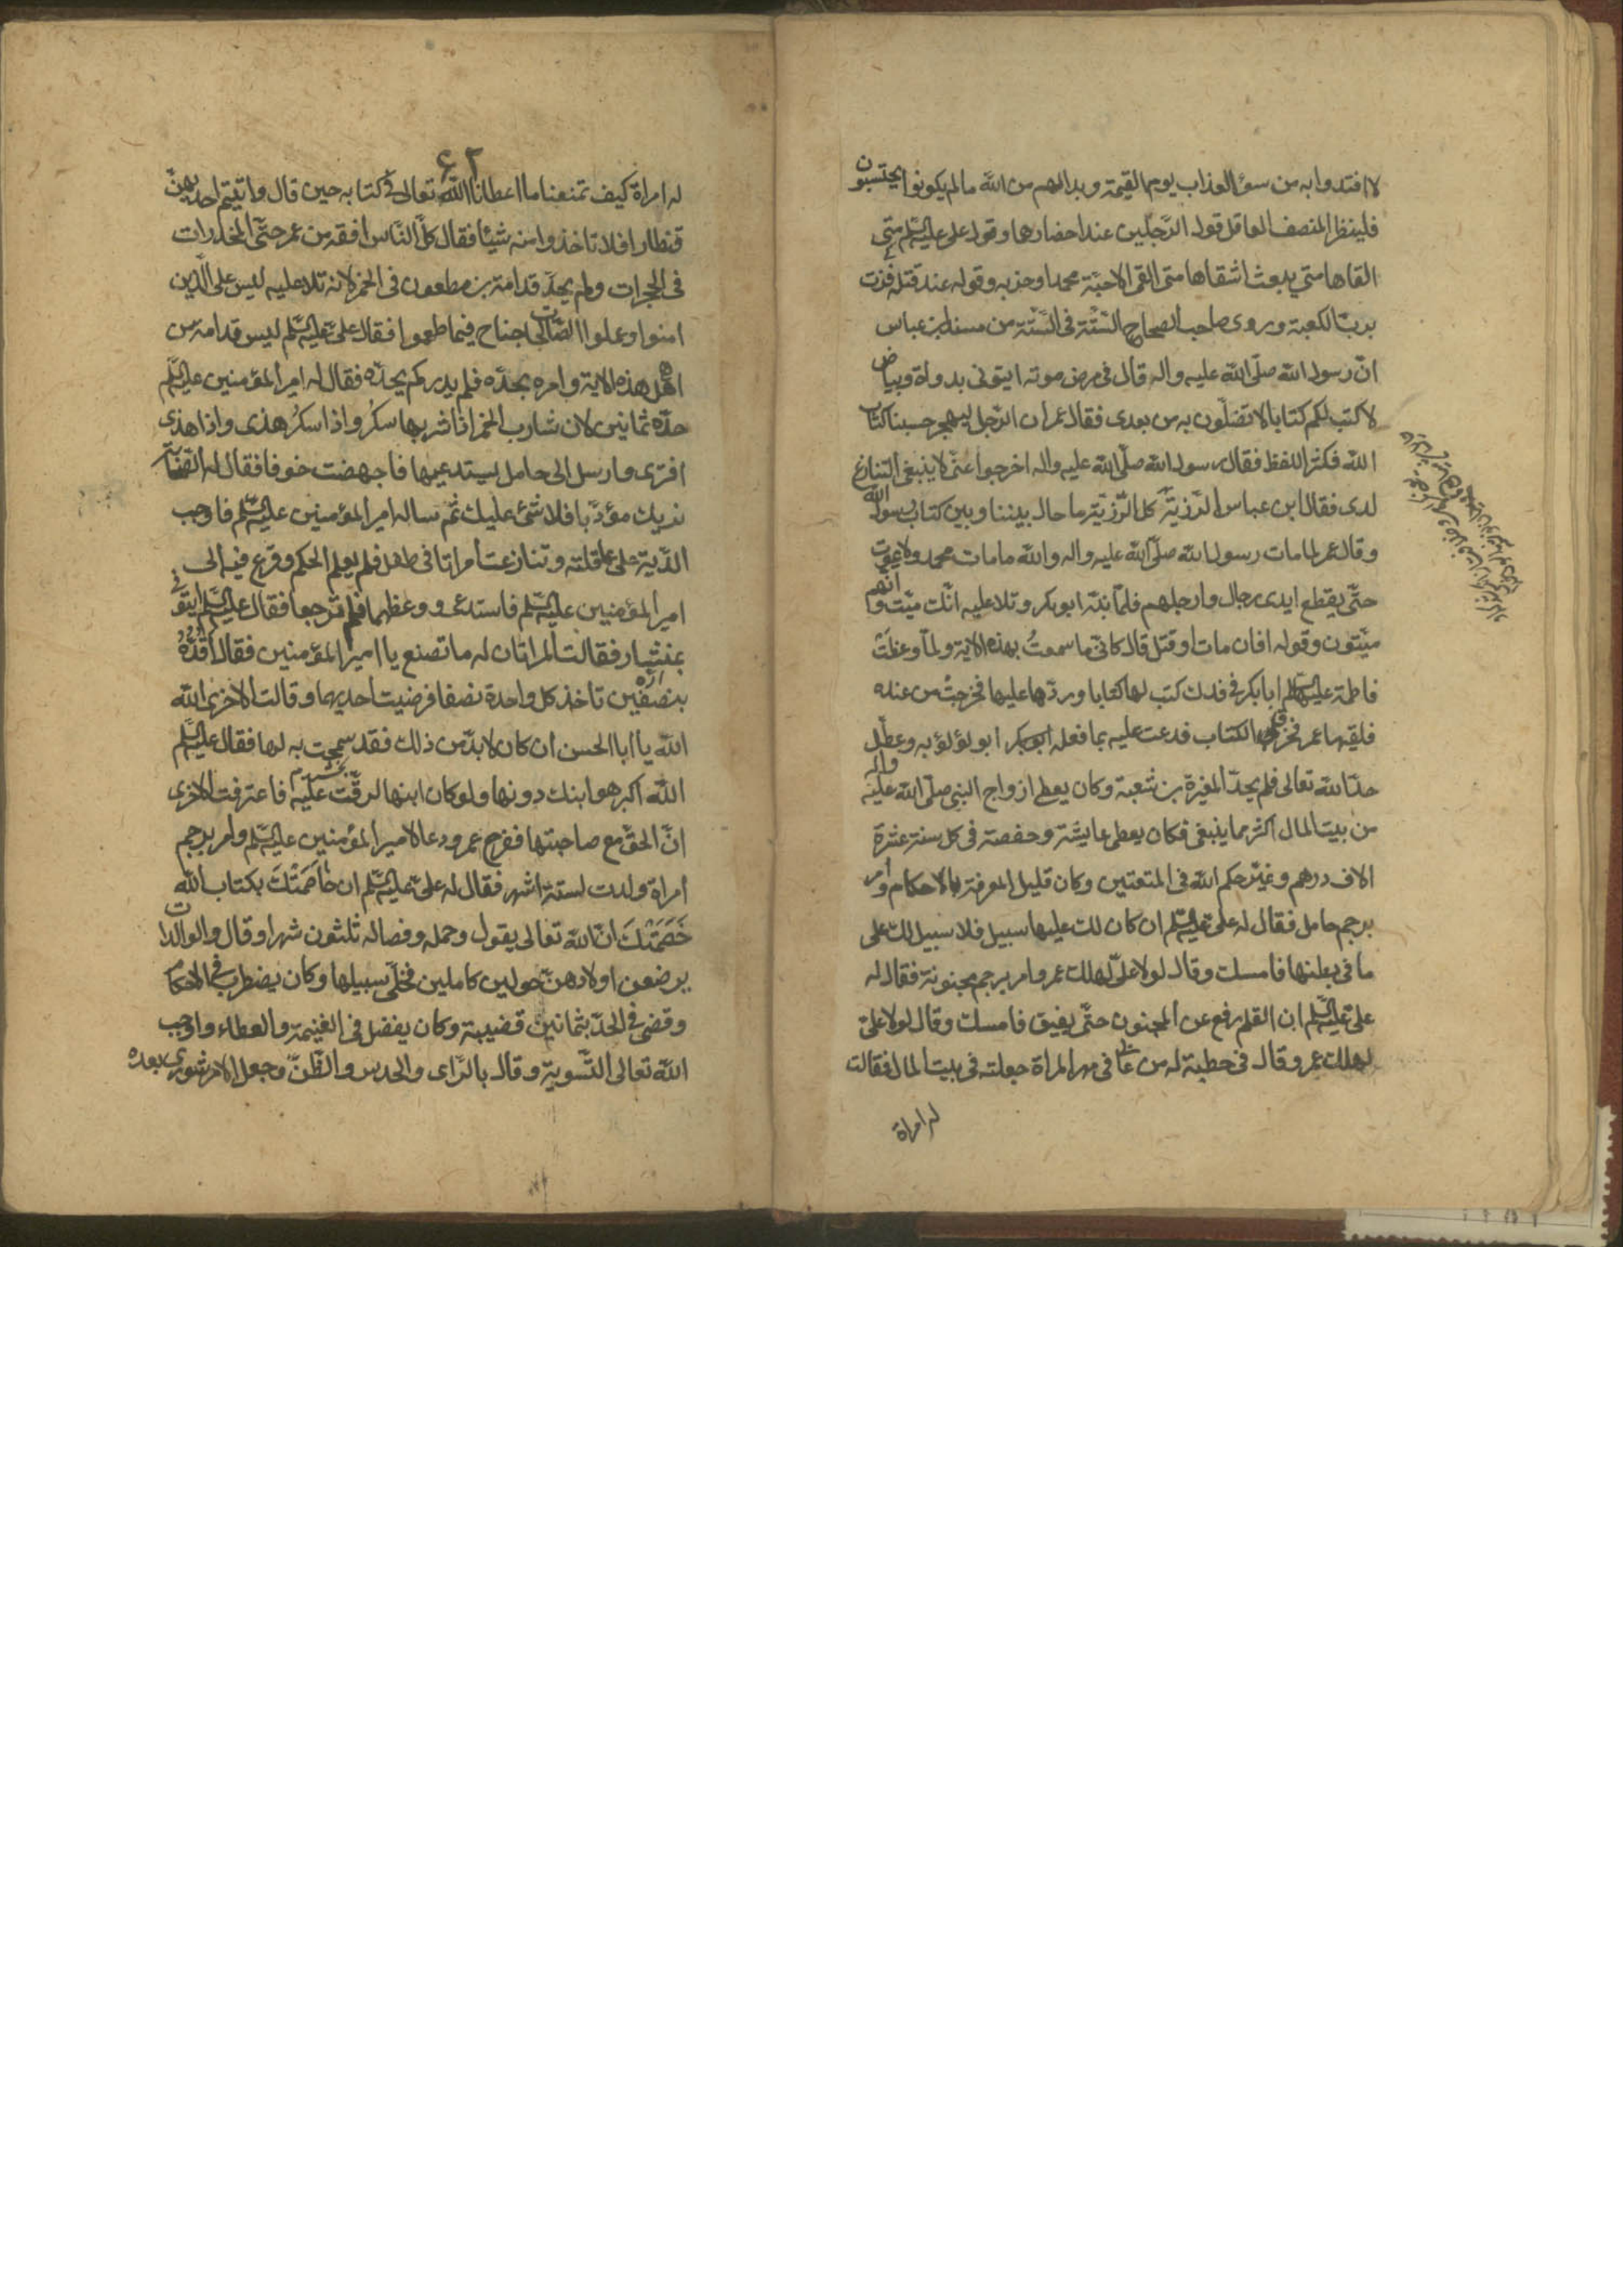 لا افتدوا به من سوء العذاب يوم القيمة وبدا لهم من الله ما لم يكونوا يحتسبون
فلينظر المنصف العاقل قول الرجلين عند احضارهما وقول على عليه السلم متى
القاها متى يبعث اشقاها متى القى الاحبة محمدا وحزبه وقوله عند قتله فزت
برب الكعبة وروى صاحب الصحاح الستة فى الستة من مسند ابن عباس
ان رسول الله صلى الله عليه واله قال فى مرض موته ايتونى بدواة وبياض
لاكتب لكم كتابا لا تضلون به من بعدى فقال عمر ان الرجل ليهجر حسبنا كتاب
الله فكثر اللفظ فقال رسول الله صلى الله عليه واله اخرجوا عنى لا ينبغى التنازع
لدى فقال ابن عباس الرزية كل الرزية ما حال بيننا وبين كتاب رسول الله
وقال عمر لما مات رسول الله صلى الله عليه واله والله ما مات محمد ولا يموت
حتى يقطع ايدى رجال وارجلهم فلما نبه ابو بكر وتلا عليه انك ميت وانهم
ميتون وقوله افان مات او قتل قال كانى ما سمعت بهذه الاية ولما وعظت
فاطمة عليها السلم ابا بكر فى فدك كتب لها كتابا وردها عليها فخرجت من عنده
فلقيها عمر فخرق الكتاب فدعت عليه بما فعله ابو لؤلؤ به وعطل
حد الله تعالى فلم يحد المغيرة بن شعبة وكان يعطى ازواج النبى صلى الله عليه واله
من بيت المال اكثر مما ينبغى فكان يعطى عايشة وحفصة فى كل سنة عشرة
الاف درهم وغير حكم الله فى المتعتين وكان قليل المعرفة بالاحكام وامر
برجم حامل فقال له على عليه السلم ان كان لك عليها سبيل فلا سبيل لك على
ما فى بطنها فامسك وقال لولا على لهلك عمر وامر برجم مجنونة فقال له
على عليه السلم ان القلم رفع عن المجنون حتى يفيق فامسك وقال لولا على
لهلك عمر وقال فى خطبة له من غالى فى مهر المراة جعلته فى بيت المال فقالت
له امراة
۶۲
له امراة كيف تمنعنا ما اعطانا الله تعالى فى كتابه حين قال واتيتم احديهن
قنطارا فلا تاخذوا منه شيئا فقال كل الناس افقه من عمر حتى المخدرات
فى الحجرات ولم يحد قدامة بن مظعون فى الخمر لانه تلا عليه ليس على الذين
امنوا وعملوا الصالحات جناح فيما طعموا فقال على عليه السلم ليس قدامة من
اهل هذه الاية وامره بحده فلم يدر كم يحده فقال له امير المؤمنين عليه السلم
حده ثمانين لان شارب الخمر اذا شربها سكر واذا سكر هذى واذا هذى
افترى وارسل الى حامل يستدعيها فاجهضت خوفا فقال له الصحابة
نريك مؤدبا فلا شئ عليك ثم ساله امير المؤمنين عليه السلم فاوجب
الدية على عاقلته وتنازعت امراتا فى طفل فلم يعلم الحكم وفزع فيه الى
امير المؤمنين عليه السلم فاستدعى ووعظهما فلم ترجعا فقال عليه السلم ايتونى
بمنشار فقالت المراتان له ما تصنع يا امير المؤمنين فقال اقده
بنصفين تاخذ كل واحدة نصفا فرضيت احديهما وقالت الاخرى الله
الله يا ابا الحسن ان كان لا بد من ذلك فقد سمحت به لها فقال عليه السلم
الله اكبر هو ابنك دونها ولو كان ابنها لرقت عليه فاعترفت الاخرى
ان الحق مع صاحبتها ففرح عمر ودعا لامير المؤمنين عليه السلم وامر برجم
امراة ولدت لستة اشهر فقال له على عليه السلم ان خاصمتك بكتاب الله
خصمتك ان الله تعالى يقول وحمله وفصاله ثلثون شهرا وقال والوالدات
يرضعن اولادهن حولين كاملين فخلى سبيلها وكان يضطرب فى الاحكام
وقضى فى الحد بثمانين قضيبة وكان يفضل فى الغنيمة والعطاء واوجب
الله تعالى التسوية وقال بالراى والحدس والظن وجعل الامر شورى بعده